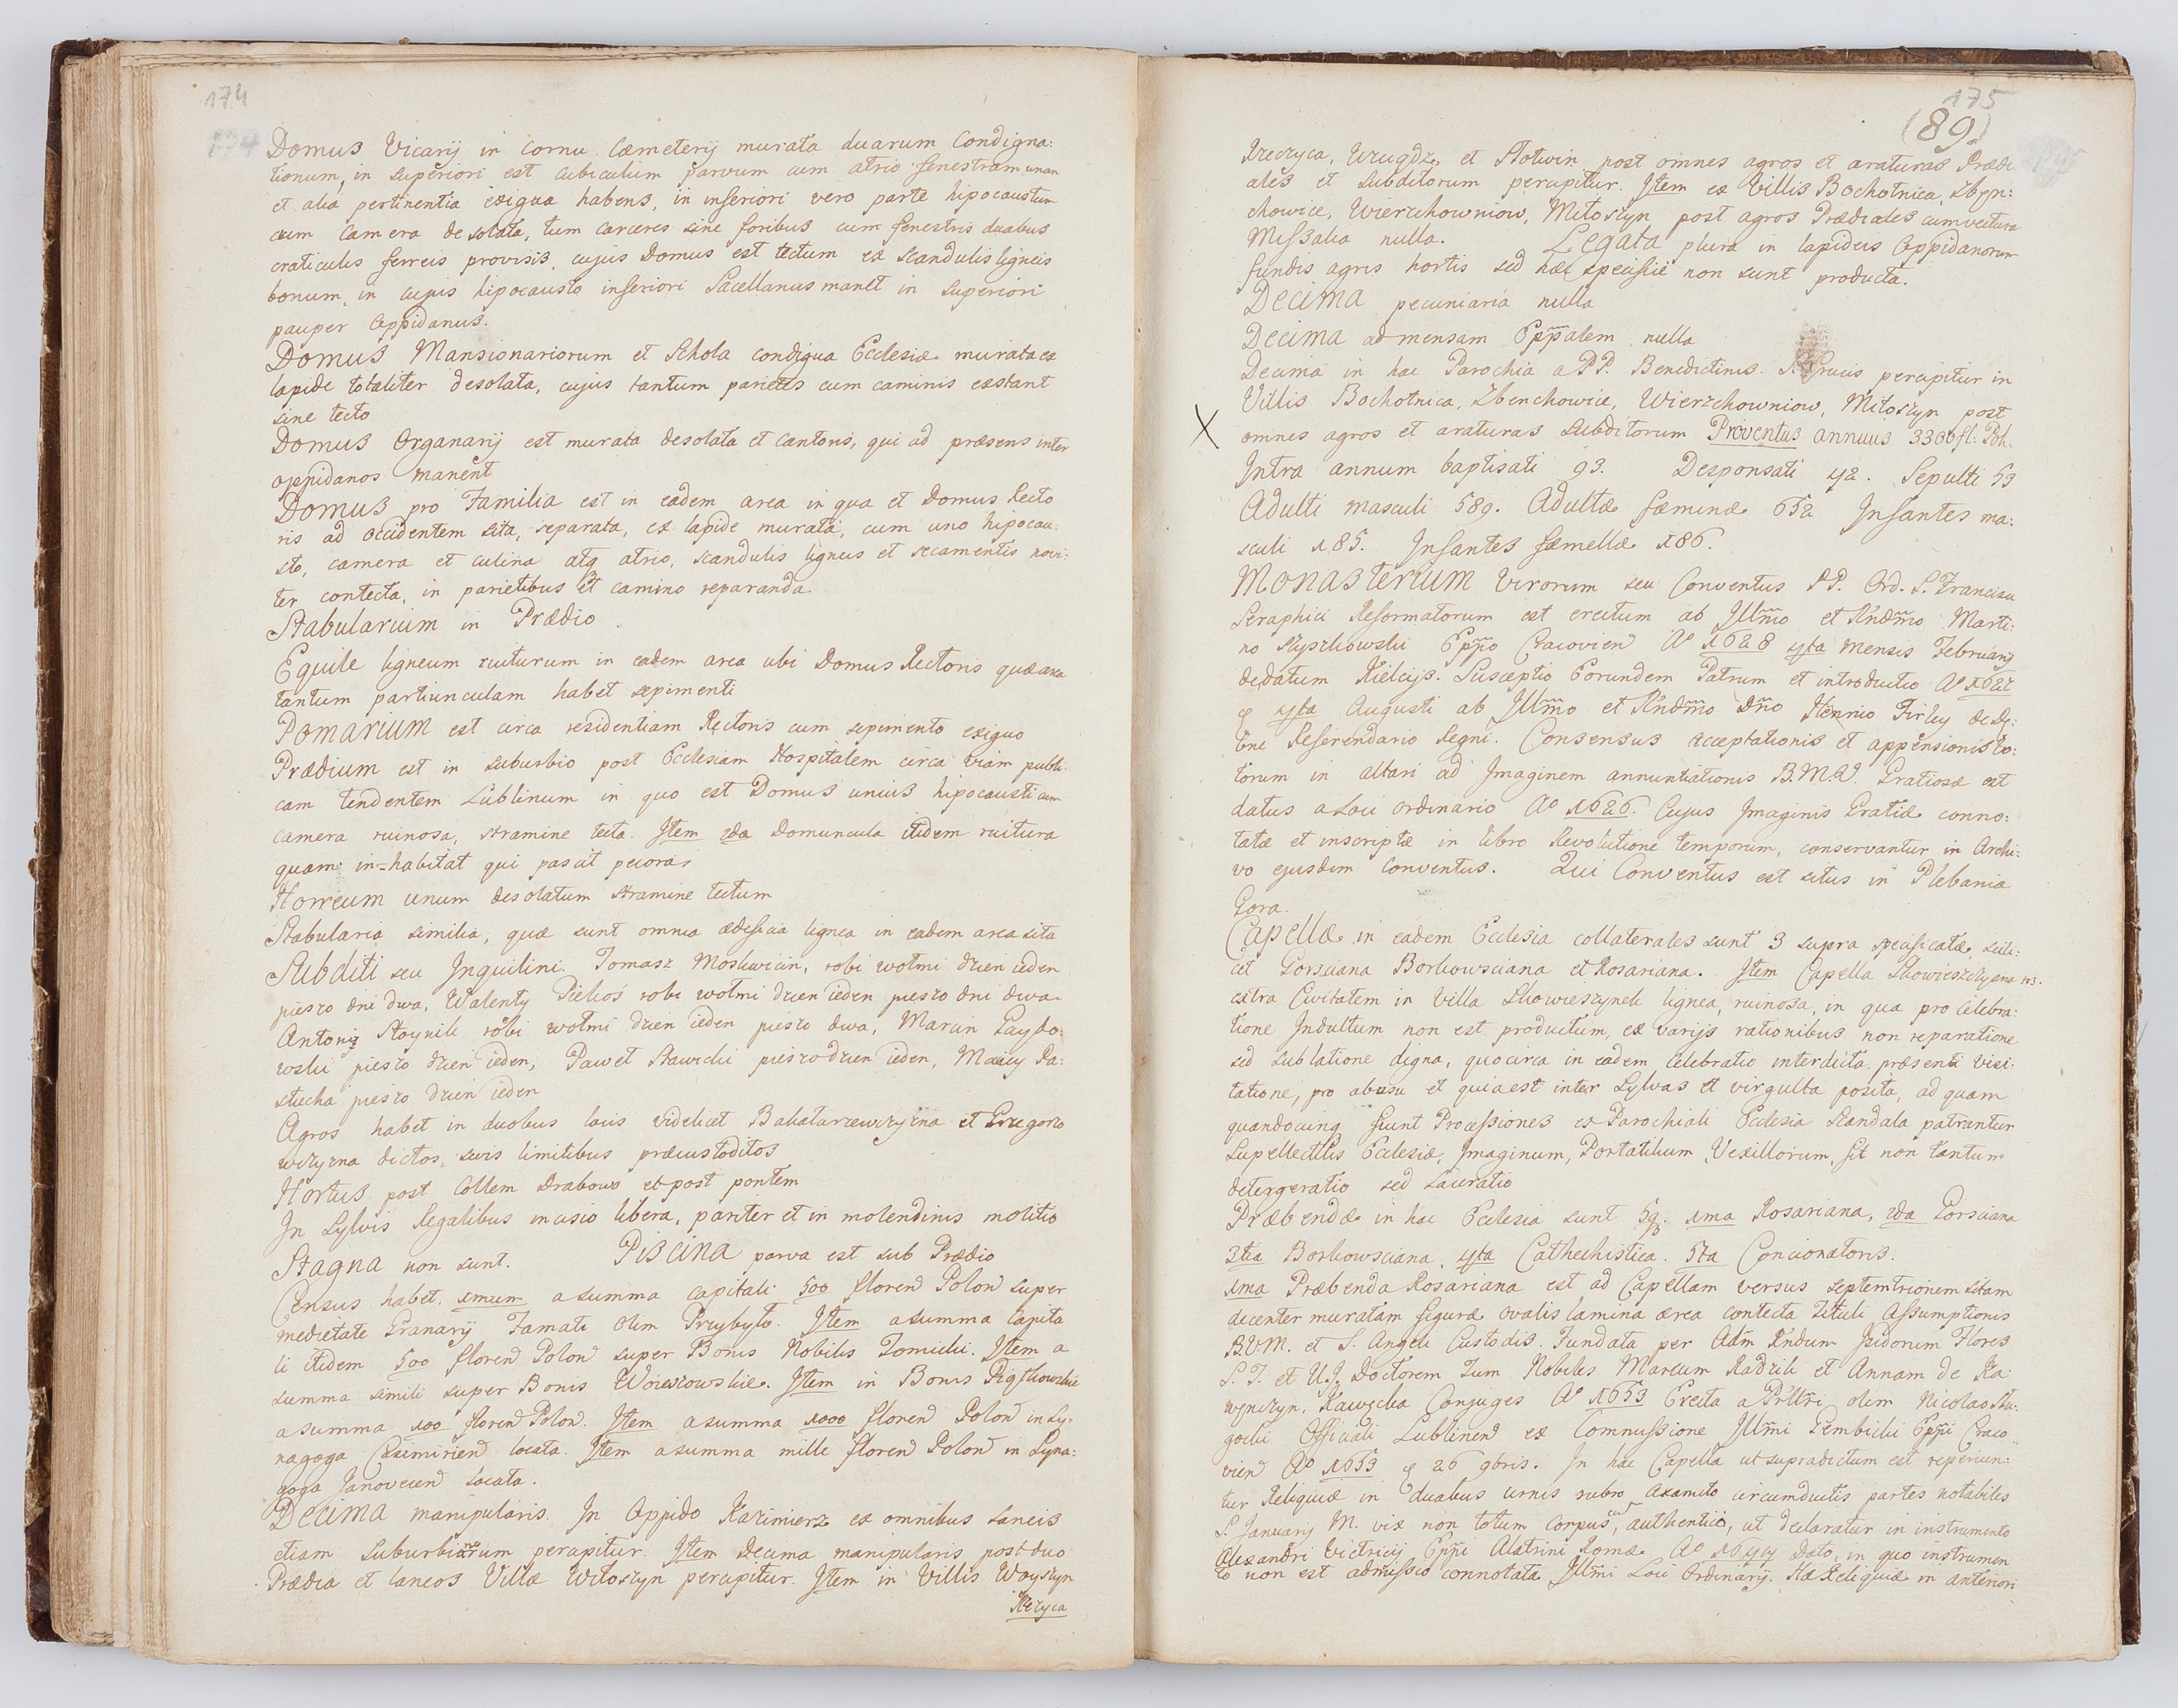 174
Domus Vicarij in Cornu Cæmeterij murata duarum Condigna:
tionum, in superiori est cubiculum parvum cum atrio fenestram unam
et alia pertinentia exigua habens, in inferiori vero parte hipocaustum
cum Camera desolata, tum carceres sine foribus cum fenestris duabus
craticulis ferreis provisis, cujus Domus est tectum ex scandulis ligneis
bonum, in cujus hipocausto inferiori Sacellanus manet in superiori
pauper Oppidanus.
Domus Mansionariorum et Schola condigua Ecclesiæ murata ex
lapide totaliter desolata, cujus tantum parietes cum caminis exstant
sine tecto
Domus Organarij est murata desolata et Cantoris, qui ad præsens inter
oppidanos manent
Domus pro Familia est in eadem area in qua et Domus Recto
ris ad occidentem sita, separata, ex lapide murata, cum uno hipocau:
sto, camera et culina atq atrio, scandulis ligneis et secamentis novi:
ter contecta, in parietibus et camino reparanda.
Stabularium in Prædio
Equile ligneum ruiturum in eadem area ubi Domus Rectoris quæ area
tantum partiunculam habet sepimenti
Pomarium est circa residentiam Rectoris cum sepimento exiguo
Prædium est in suburbio post Ecclesiam Hospitalem circa viam publi:
cam tendentem Lublinum in quo est Domus unius hipocausti cum
camera ruinosa, stramine tecta. Item 2da Domuncula itidem ruitura
quam in-habitat qui pascit pecora
Horreum unum desolatum stramine tectum
Stabularia similia, quæ sunt omnia ædificia lignea in eadem area sita
Subditi seu Inquilini. Tomasz Moskwicin, robi wołmi dzien ieden
pieszo dni dwa, Walenty Piekoś robi wołmi dzien ieden pieszo dni dwa
Antoni Stoynik robi wołmi dzien ieden pieszo dwa, Marcin Gaydo:
wski pieszo dzien ieden, Paweł Sławicki pieszo dzien ieden, Maciey Pa:
stucha pieszo dzien ieden
Agros habet in duobus locis videlicet et Grzegorzo
wizyzna dictos, suis limitibus præcustoditos
Hortus post Collem Drabowo et post pontem
In Sylvis Regalibus incisio libera, pariter et in molendinis molitio
Stagna non sunt. Piscina parva est sub Prædio
Census habet. 1mum a summa capitali 500 floren Polon super
medietate Granarij Famati olim Przybyło. Item a summa capita
li itidem 500 floren Polon super Bonis Nobilis Tomicki. Item a
summa simili super Bonis Woieszowskie. Item in Bonis
a summa 100 floren Polon. Item a summa 1000 floren Polon in Sy:
nagoga Casimirien locata. Item a summa mille floren Polon in Syna:
goga Janovecen locata.
Decima manipularis. In Oppido Kazimierz ex omnibus Laneis
etiam Suburbiorum percipitur. Item Decima manipularis post duo
Prædia et laneos Villæ Witoszyn percipitur. Item in Villis Woyszyn
Rzeczyca
175
(89.)
Rzeczyca, Uzugdz, et Stotwin post omnes agros et araturas Prædi
ales et subditorum percipitur. Item ex Villis Bochotnica, Zbyn:
chowice, Wierzchowniow, Miłoszyn post agros Prædiales cum vectura
Missalia nulla. Legata plura in lapideis Oppidanorum
fundis agris hortis sed hæc specifice non sunt producta.
Decima pecuniaria nulla
Decima ad mensam Eppalem nulla
Decima in hac Parochia a PP. Benedictinis S. Crucis percipitur in
Villis Bochotnica, Zbenchowice, Wierzchowniow, Miłoszyn post
X omnes agros et araturas subditorum Proventus annuus 3300 fl: Pol.
Intra annum baptisati 93. Desponsati 42. Sepulti 53
Adulti masculi 589. Adultæ fæminæ 652 Infantes ma:
sculi 185. Infantes fæmellæ 186.
Monasterium Virorum seu Conventus PP. Ord. S. Francisci
Seraphici Reformatorum est erectum ab Illmo et Rndmo Marti:
no Szyszkowski Eppo Cracovien Ao 1628 4ta mensis Februarij
de datum Kielcijs. Susceptio Eorundem Patrum et introductio Ao
4ta Augusti ab Illmo et Rndmo Dno Henrico Firley de Dą:
Referendario Regni. Consensus acceptationis et appensionis vo:
torum in altari ad Imaginem annuntiationis B.M.V. Gratiosæ est
datus a Loci ordinario Ao 1626. Cujus Imaginis Gratiæ conno:
tatæ et inscriptæ in libro Revolutione temporum, conservantur in Archi:
vo ejusdem Conventus. Qui Conventus est situs in Plebania
Gora.
Capellæ in eadem Ecclesia collaterales sunt 3 supra specificatæ, scili:
cet Gorsciana Borkowsciana et Rosariana. Item Capella
extra Civitatem in Villa Skowieszynek lignea, ruinosa, in qua pro celebra:
tione Indultum non est productum, ex varijs rationibus non reparatione
sed sublatione digna, quocirca in eadem Celebratio interdicta præsenti visi:
tatione, pro abusu et quia est inter Sylvas et virgulta posita, ad quam
quandocunq fiunt Processiones ex Parochiali Ecclesia Scandala patrantur
Supellectilis Ecclesiæ, Imaginum, Portatilium, Vexillorum, fit non tantum
detergeratio sed Laceratio
Præbendæ in hac Ecclesia sunt 5q. 1ma Rosariana, 2da Gorsciana
3tia Borkowsciana, 4ta Cathechistica. 5ta Concionatoris.
1ma Præbenda Rosariana est ad Capellam versus septemtrionem sitam
decenter muratam figuræ ovalis lamina ærea contecta Tituli Assumptionis
B.V.M. et S. Angeli Custodis. Fundata per Adm Rndum Isidorum Flores
S. T. et U.J. Doctorem tum Nobiles Marcum Radzik et Annam de Ka:
Conjuges Ao 1653 Erecta a Prllri olim Nicolao Stu:
Officiali Lublinen ex Commissione Illmi Gembicki Eppi Craco
vien Ao 1653 26 9bris. In hac Capella ut supradictum est reperiun:
tur Reliquiæ in duabus urnis rubro axamito circumductis partes notabiles
S. Januarij M. vix non totum corpus, cum authentico, ut declaratur in instrumento
Alexandri Victricij Eppi Alatrini Romæ Ao dato, in quo instrumen
to non est admissio connotata Illmi Loci Ordinarij. Hæ Reliquiæ in anteriori